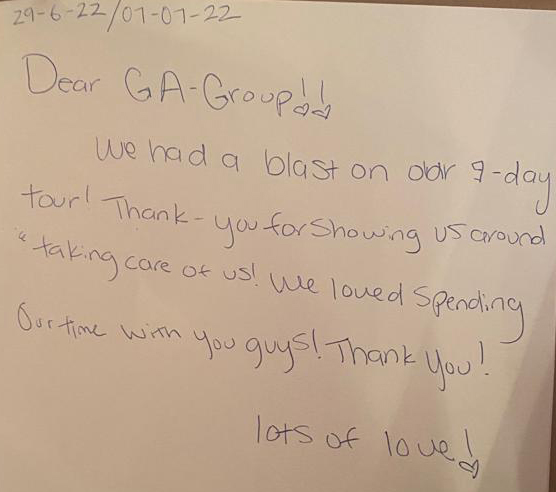 29-6-22/07-07-22
Dear GA-Group!!
We had a blast on our 9-day
tour! Thank-you for Showing us around
& taking care of us! We loved Spending
Our time with you guys! Thank You!
lots of love!